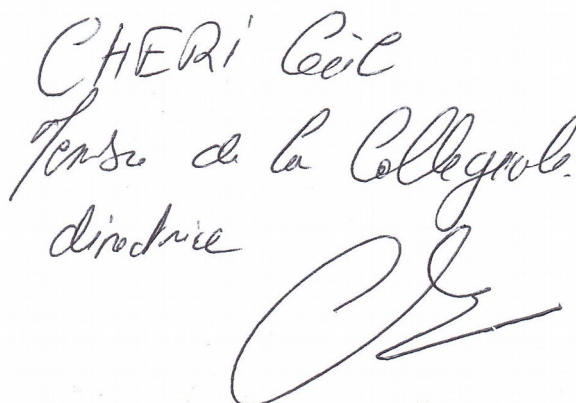 CHERI Cécil
Membre de la Collégiale
directrice